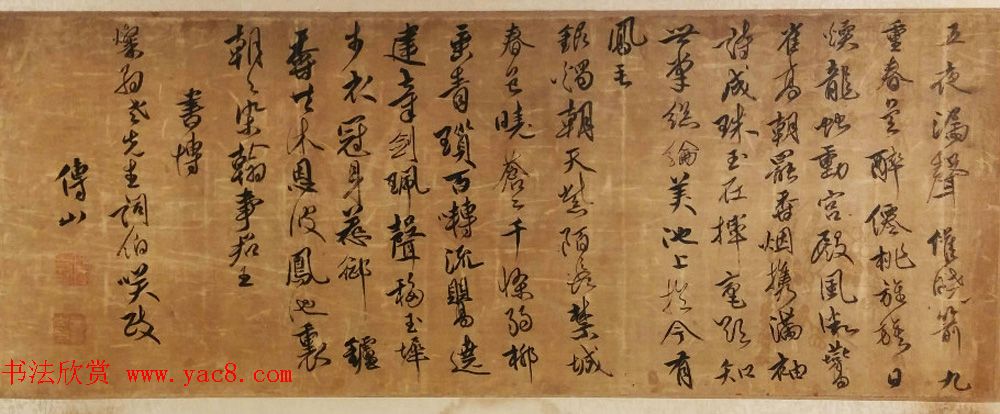 五夜漏聲催曉箭九
重春色醉僊桃旌旗日
煖龍蛇動宮殿風微鷰
雀高朝罷香烟携滿袖
詩成珠玉在揮毫欲知
世掌絲綸美池上於今有
鳳毛
銀燭朝天紫陌長禁城
春色曉蒼〻千條弱柳
垂青瑣百囀流鶯遶
建章劍珮聲移玉墀
步衣冠身惹御鑪
香共沐恩波鳳池裏
朝〻染翰事君王
書博
老先生詞伯咲政
傅山
书法欣赏 www.yac8.com